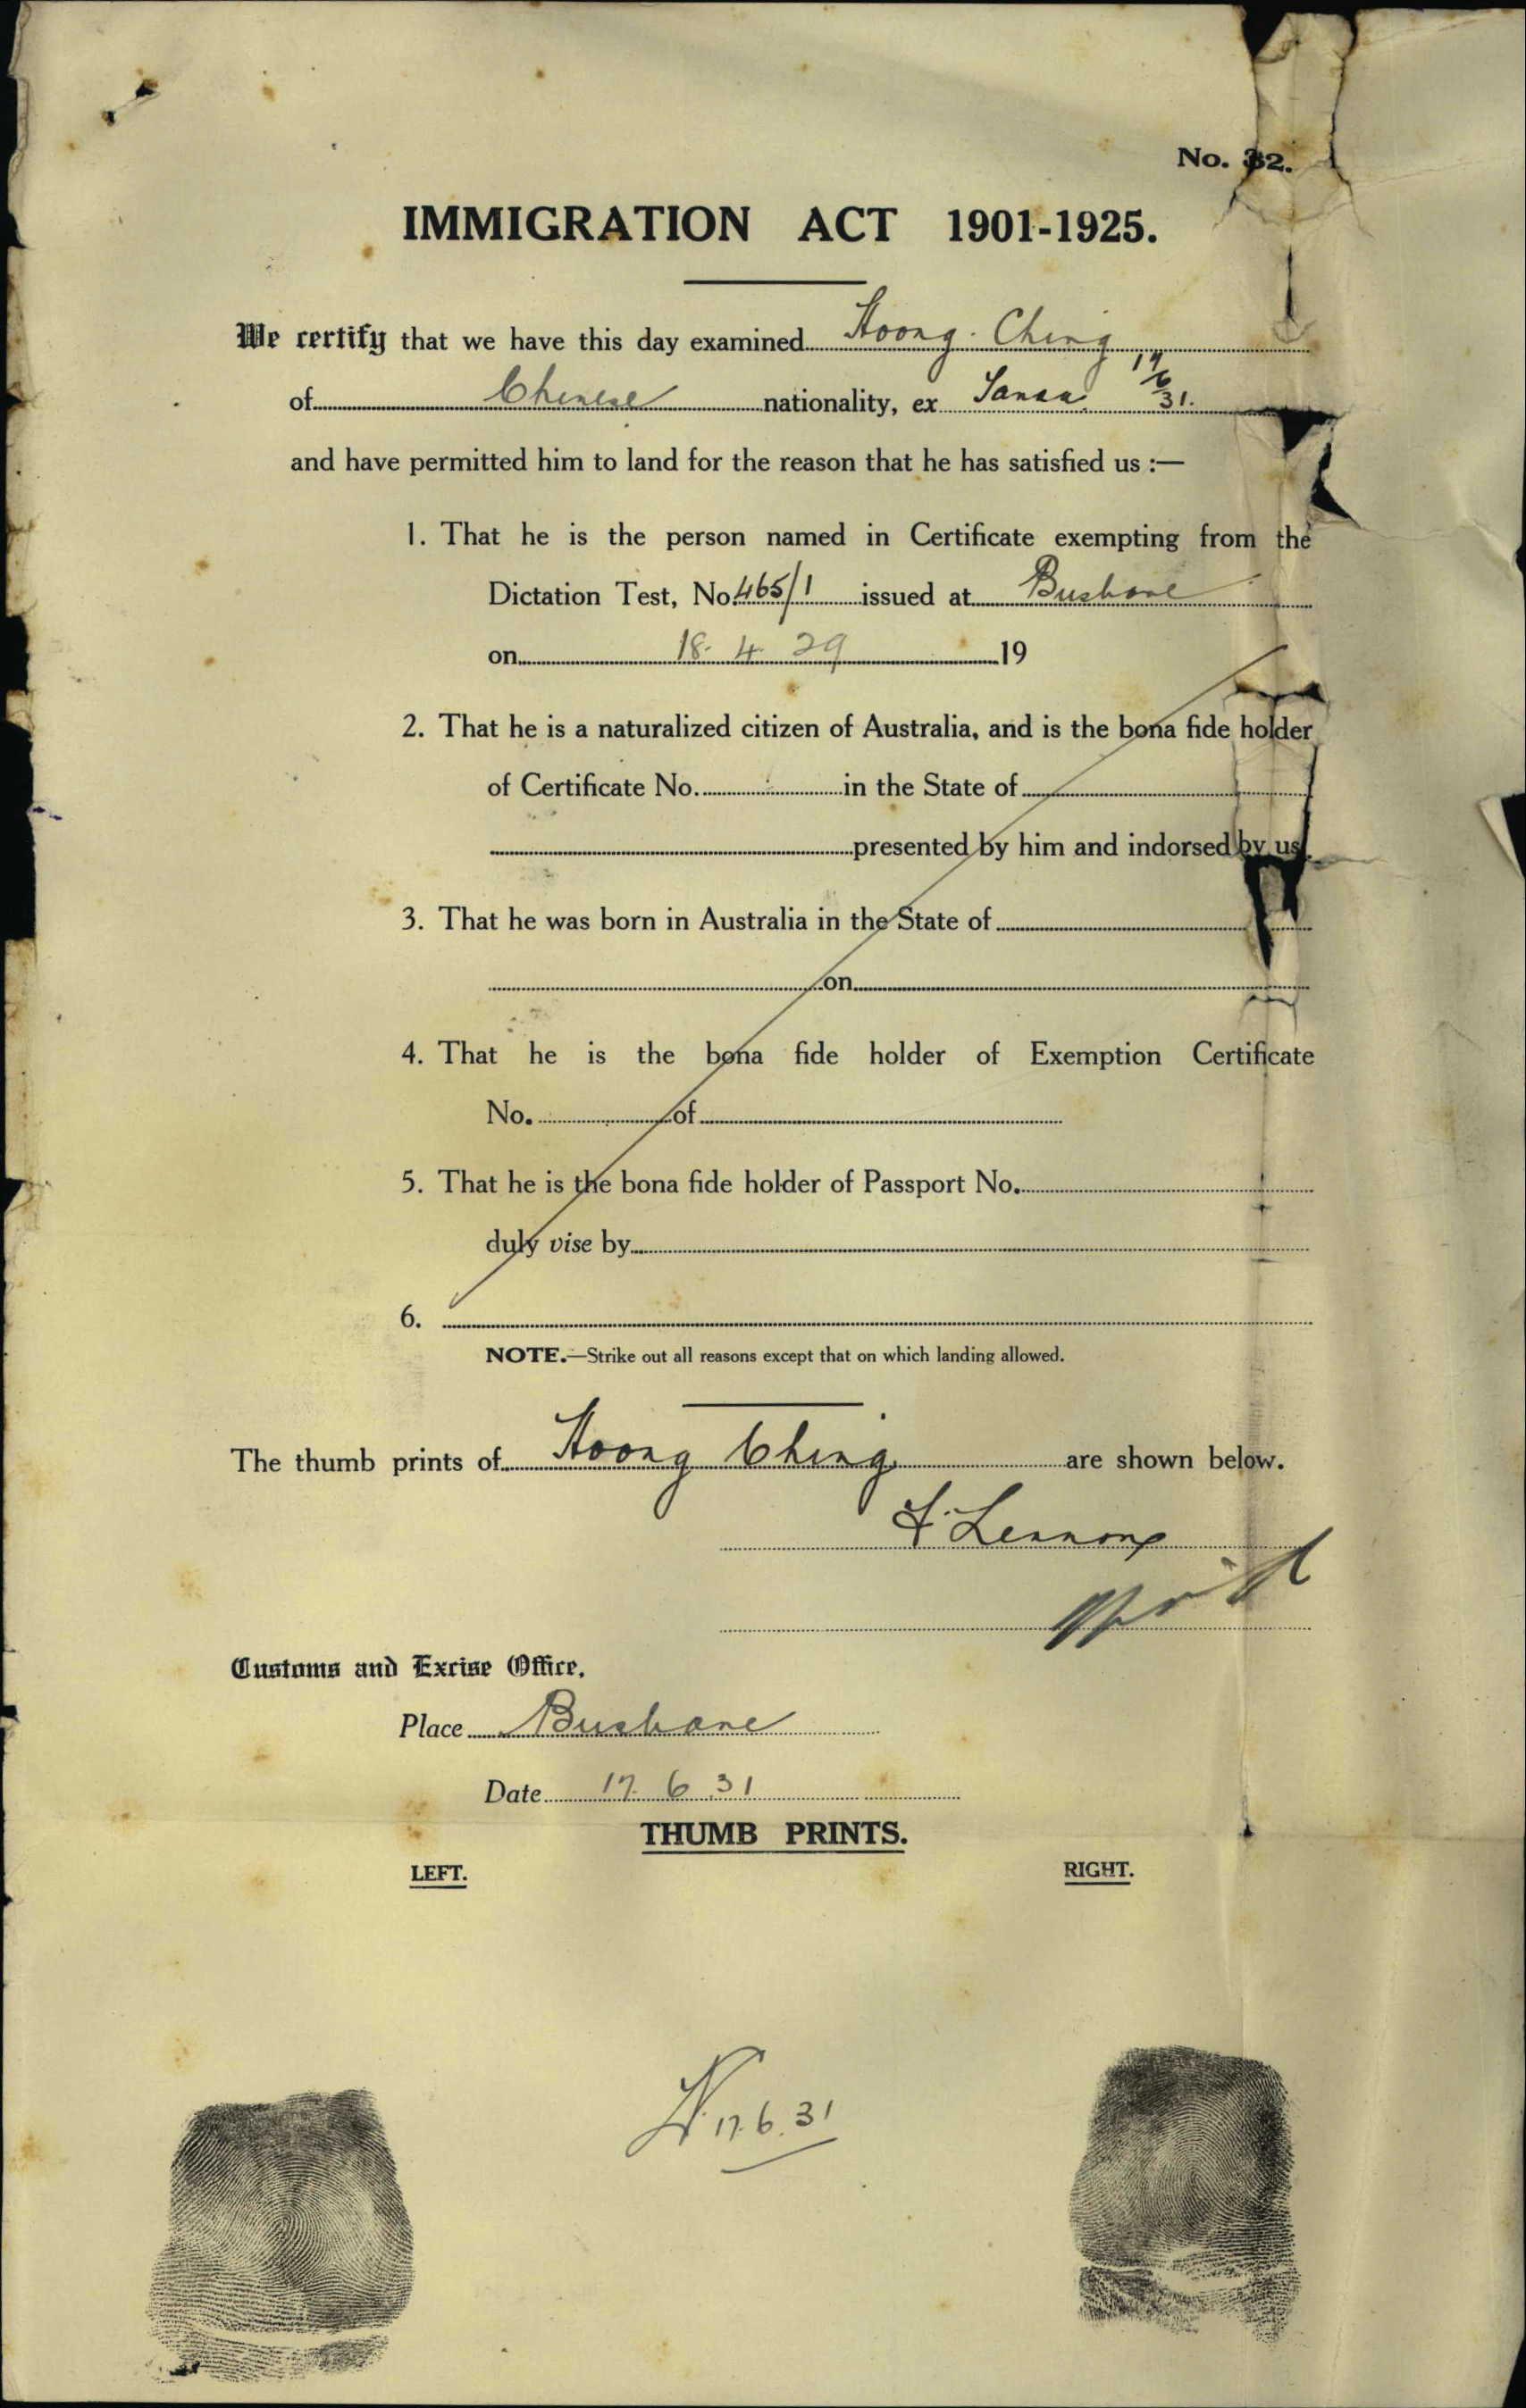 No. 32.
IMMIGRATION ACT 1901-1925.
We certify that we have this day examined Hoong Ching
of Chinese nationality, ex Tanda 17/6/31.
and have permitted him to land for the reason that he has satisfied us :—
1. That he is the person named in Certificate exempting from the
Dictation Test, No. 465/1 issued at Brisbane
on 18. 4. 29 19
2. That he is a naturalized citizen of Australia, and is the bona fide holder
of Certificate No. in the State of
presented by him and indorsed by us.
3. That he was born in Australia in the State of
on
4. That he is the bona fide holder of Exemption Certificate
No. of
5. That he is the bona fide holder of Passport No.
duly vise by
6.
NOTE.—Strike out all reasons except that on which landing allowed.
The thumb prints of Hoong Ching are shown below.
Lennox
Customs and Excise Office.
Place Brisbane
Date 17. 6. 31
THUMB PRINTS.
LEFT. RIGHT.
17. 6. 31